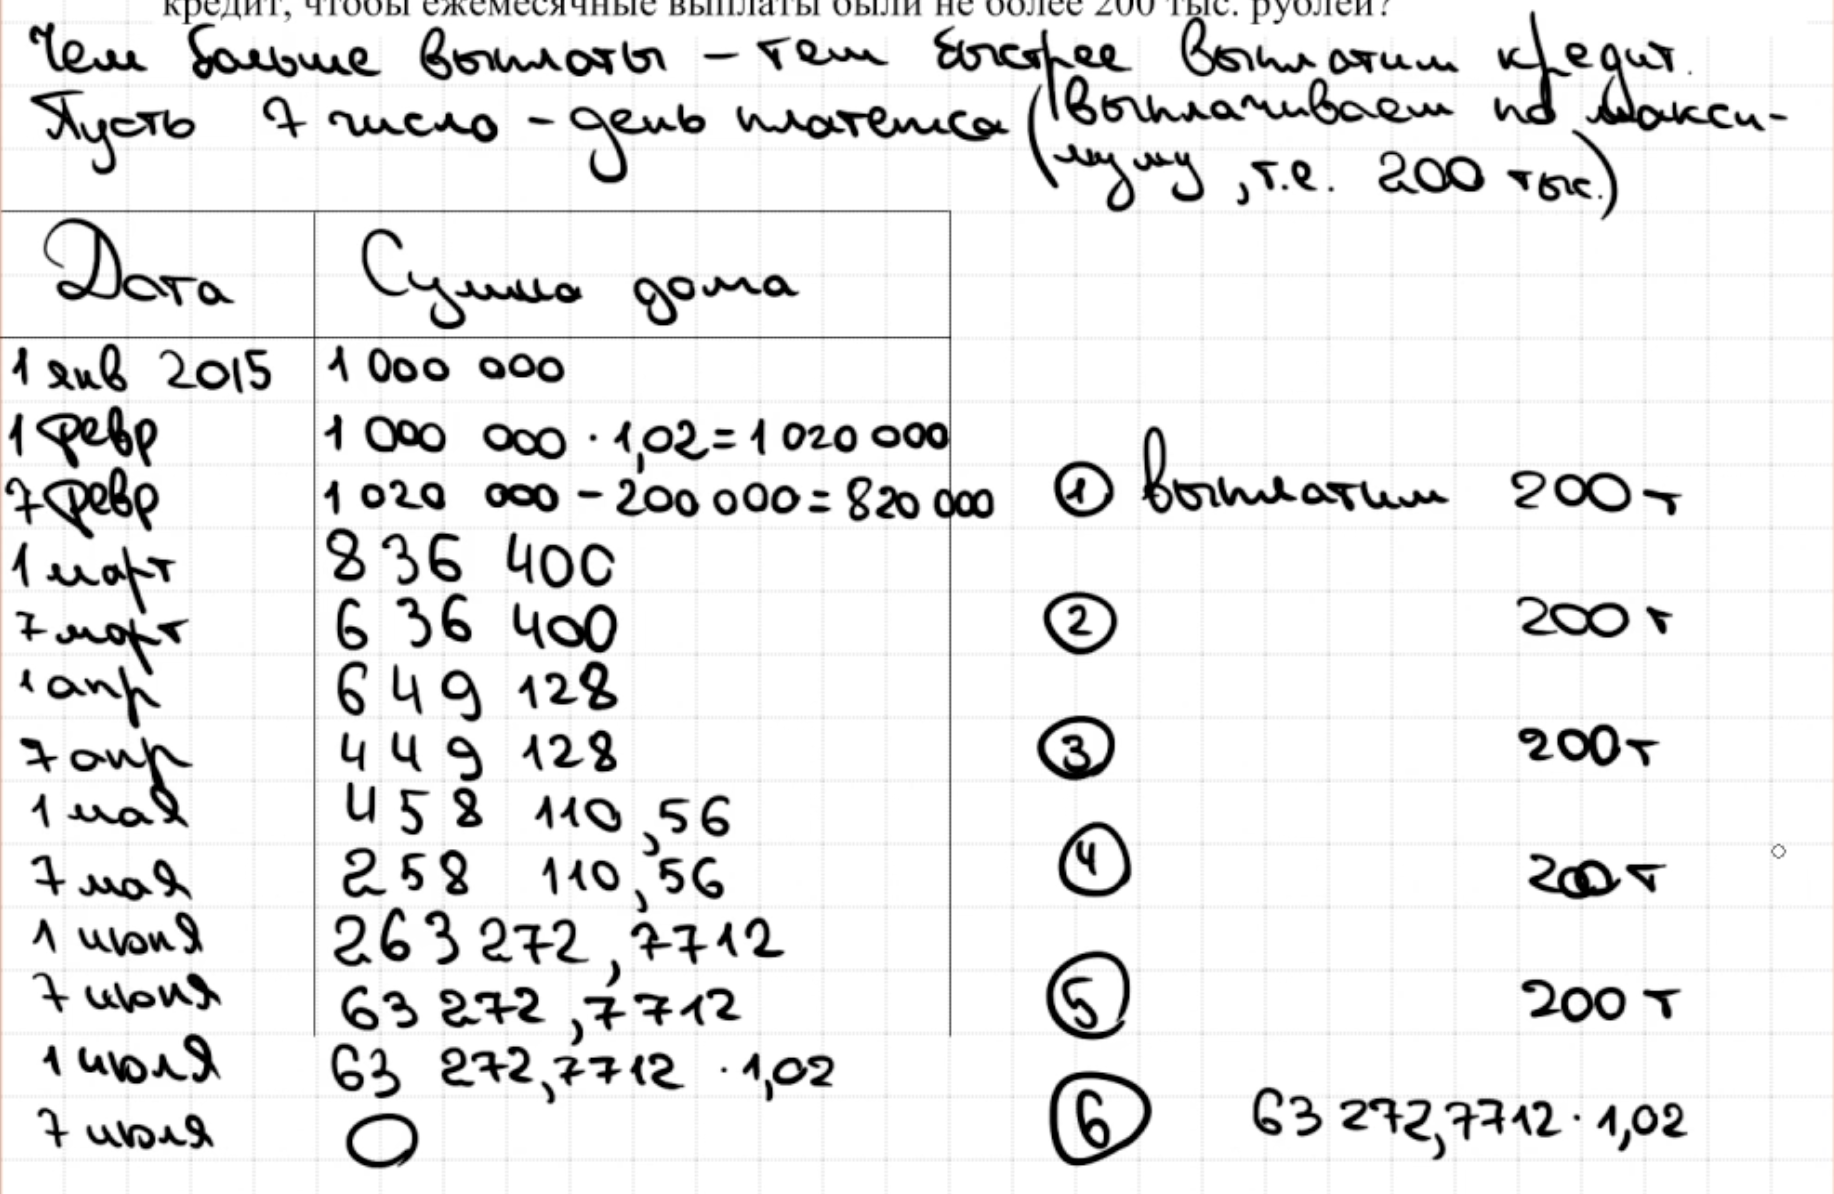 кредит, чтобы ежемесячные выплаты были не более 200 тыс. рублей?
Чем больше выплаты – тем быстрее выплатим кредит.
Пусть 7 число – день платежа (выплачиваем по макси-
муму, т.е. 200 тыс.)
Дата Сумма дома
1 янв 2015 1 000 000
1 февр 1 000 000 · 1,02 = 1 020 000
7 февр 1 020 000 – 200 000 = 820 000 ① выплатим 200 т
1 март 836 400
7 март 636 400 ② 200 т
1 апр 649 128
7 апр 449 128 ③ 200 т
1 мая 458 110,56
7 мая 258 110,56 ④ 200 т
1 июня 263 272,7712
7 июня 63 272,7712 ⑤ 200 т
1 июля 63 272,7712 · 1,02
7 июля 0 ⑥ 63 272,7712 · 1,02